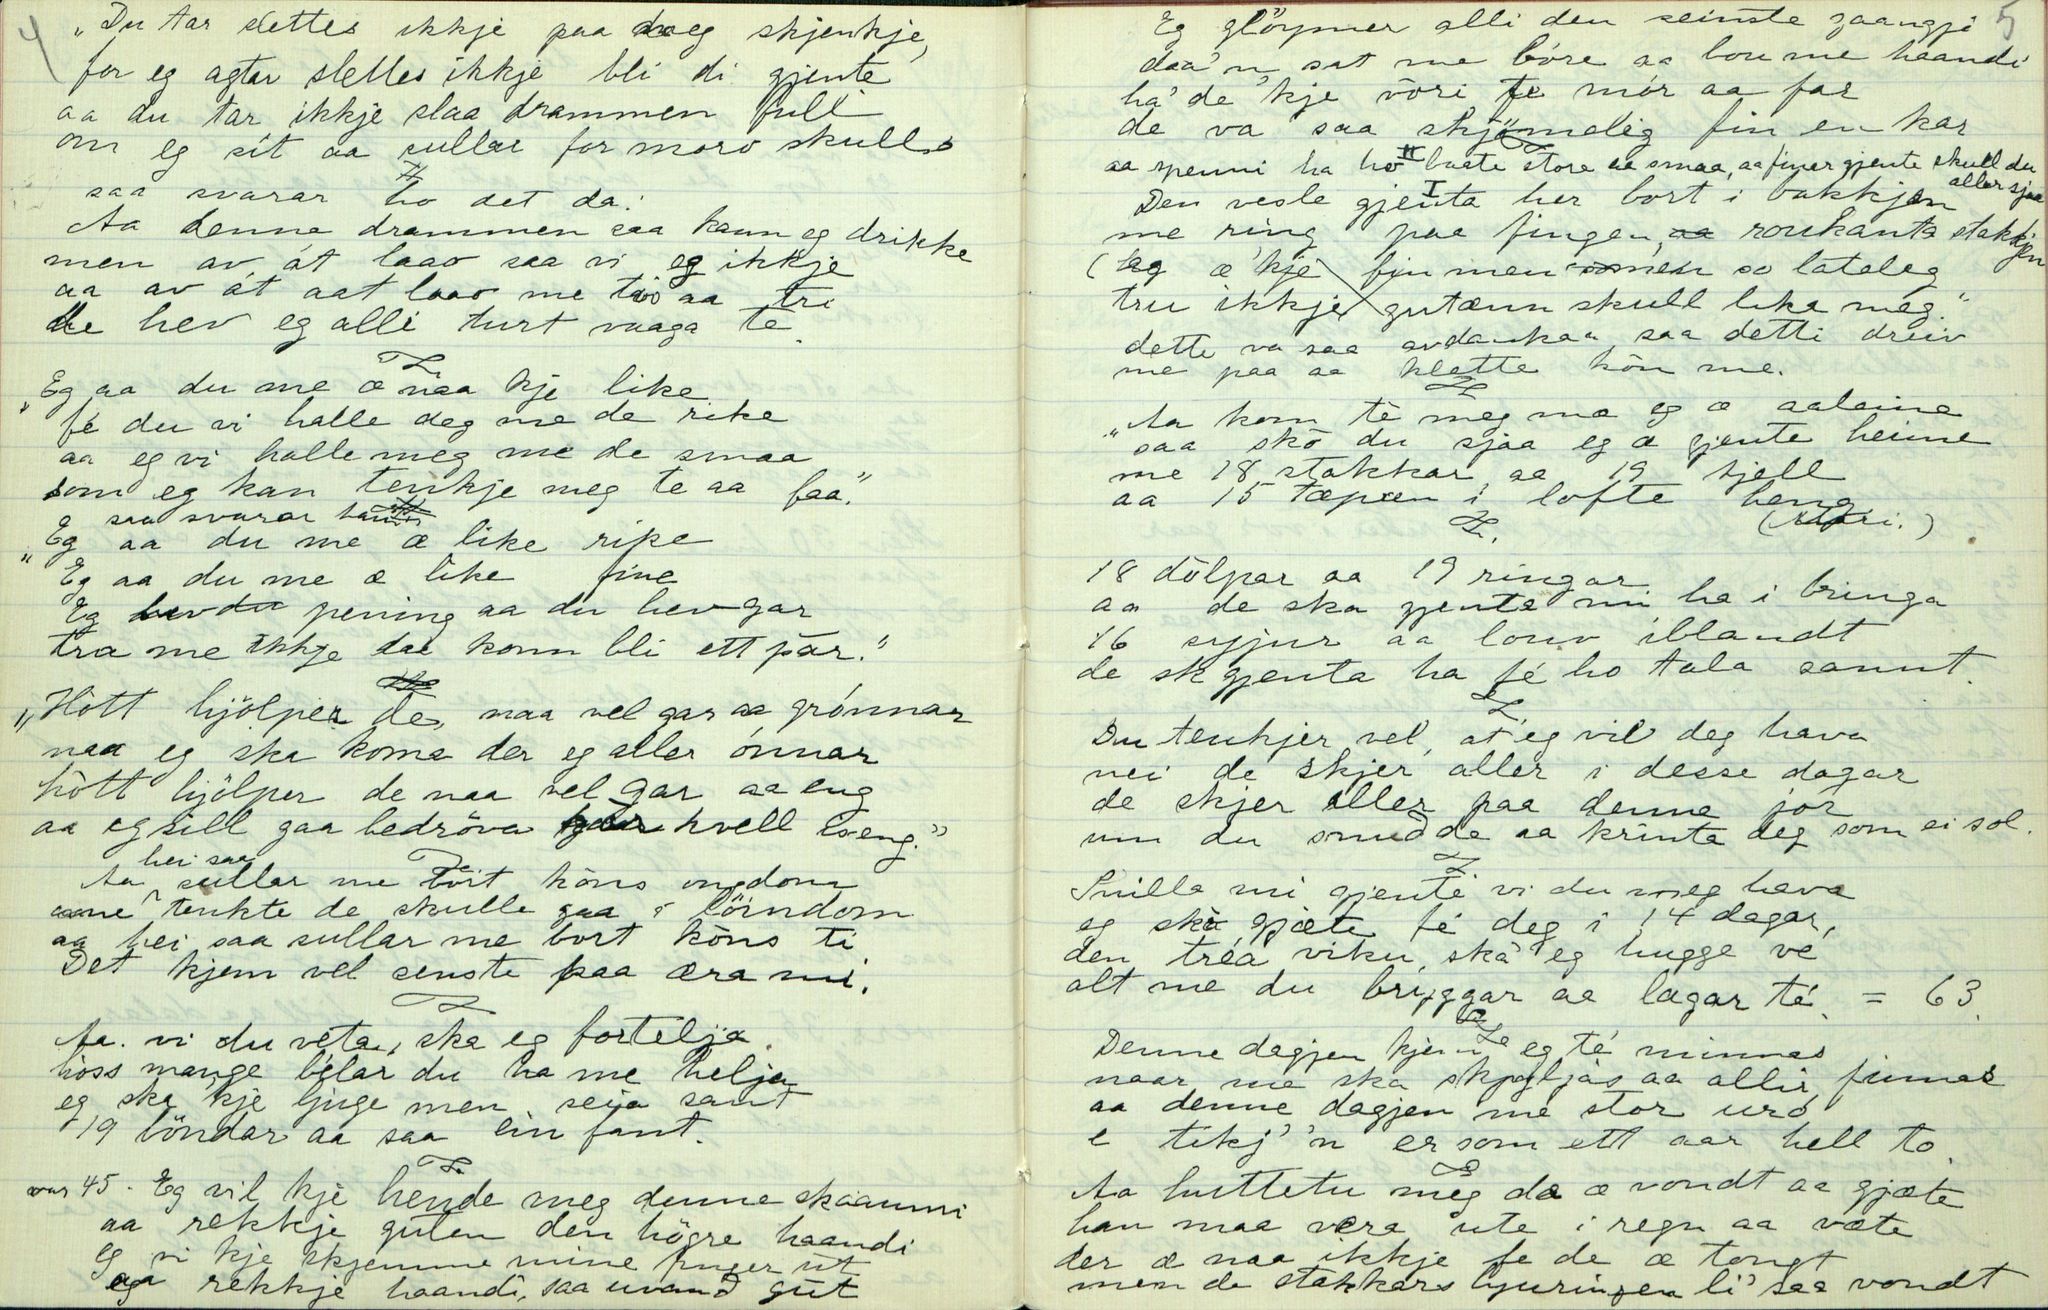 4
"Du tar slettes ikkje paa meg skjenkje,
for eg agtar slettes ikkje bli di gjente
aa du tar ikkje slaa drammen full
om eg sit aa sullar for moro skull"
saa svarar ho det da:
Aa denne drammen saa kann eg drikke
men av át laao saa vi eg ikkje
aa av át aat laao me tvo aa tri
de hev eg alli turt vaaga te.
"Eg aa du me æ naa kje like
fé du vi halle deg me de rike
aa eg vi halle meg me de smaa
som eg kan tenkje meg te aa faa."
saa svarar han
"Eg aa du me æ like rike
Eg aa du me æ like fine
Eg hev pening aa du hev gar
tra me ikkje daa konn bli ett par."
"Hòtt hjölper de, naa vel gar aa grónnar
naa eg ska koma der eg aller ónnar
hòtt hjölper de naa vel gar aa eng
aa eg sill gaa bedröva kvell i seng."
hei saa
Aa sullar me bórt kòns ongdom
me tenkte de skulle gaa i löindom
aa hei saa sullar me bort kòns ti
Det kjem vel senste paa æra mi.
Aa. vi du veta, ska eg fortelja
hoss mange bélar du ha me helja
eg ska kje ljuge men seia sant
19 böndar aa saa ein fant.
var 45. Eg vil kje hende meg denne skaammi
aa rekkje guten den högre haandi
eg vi kje skjemme mine finger ut
aa rekkje haandi, saa uvand gut
5
Eg glöymer alli den seinste gaangji
daa'n sat me bóre aa bou me haandi
ha de 'kje vöri fé mór aa far
de va saa skjömeleg fin en kar
aa spenni ha ho baate store aa smaa, aa finer gjente skull du
aller sjaa
Den vesle gjenta her bort i bakkjen
me ring paa fingen, roukanta stakkjen
(eg æ 'kje fin men so lateleg
tru ikkje gutænn skull lika meg."
dette va saa avdankaa, saa detti dreiv
me paa aa kletta kön me.
"Aa kom té meg mæ eg æ aaleine
saa skò du sjaa eg æ gjente heime
me 18 stakkar aa 19 fjell
aa 15 tæpæn i lofte heng
18 dölpar aa 19 ringar
aa de ska gjenta mi ha i bringa
16 syjur aa louv iblandt
de sk gjenta ha fé ho tala sannt.
Du tenkjer vel, at eg vil deg hava
nei de skjer aller i desse dagar
de skjer aller paa denne jor
um du smudde aa krinta deg som ei sol.
Snilla mi gjente vi du meg hava
eg skà gjæte fé deg i 14 dagar,
den tréa viku, skà eg hugge ve
alt me du bryggar aa lagar té. = 63.
Denne dagjen kjem eg té minnas
naar me ska skjoljas aa allir finnas
aa denne dagjen me stor uro
e tikj'n er som ett aar hell to.
Aa huttetu meg de æ vondt aa gjæte
han maa vera ute i regn aa væte
der æ naa ikkje fe de æ tongt
men de stakkars hjuringen li saa vondt